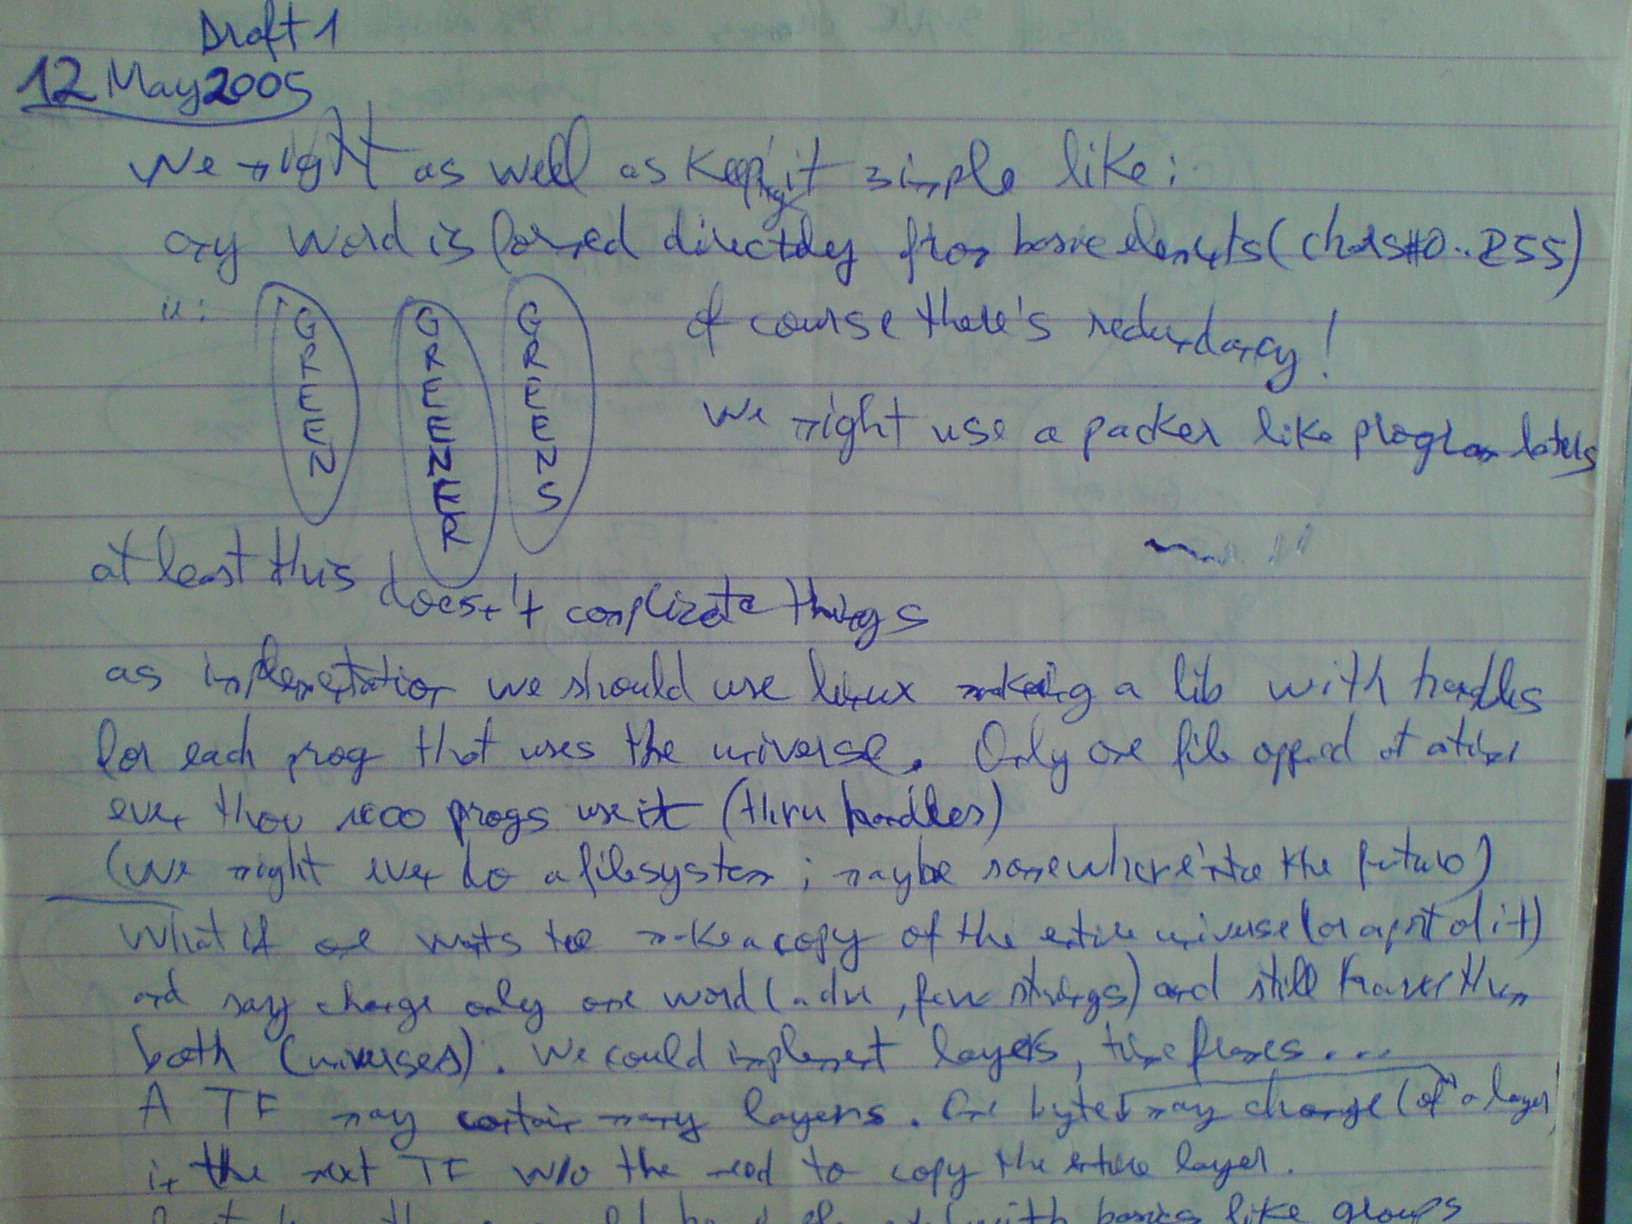 Draft 1
12 May 2005
We might as well as keep it simple like:
any word is formed directly from basic elements (chars#0..255)
ii:
GREEN
GREENER
GREENS
of course there's redundancy!
We might use a packer like program later
at least this doesn't complicate things
as implementation we should use linux making a lib with handles
for each prog that uses the universe. Only one file opped at a time
even thou 1000 progs use it (thru handles)
(We might even do a filesystem; maybe somewhere into the future)
What if one wants too make a copy of the entire universe (or a part of it)
and say change only one word (a dir, few strings) and still have them
both (universes). We could implement layers, time frames...
A TF may contain many layers. One byte may change (of a layer)
in the next TF w/o the need to copy the entire layer.
with basics like groups